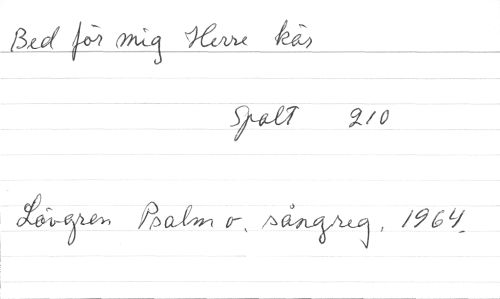 Bed för mig Herre kär
Spalt 210
Lövgren Psalm o. sångreg. 1964.